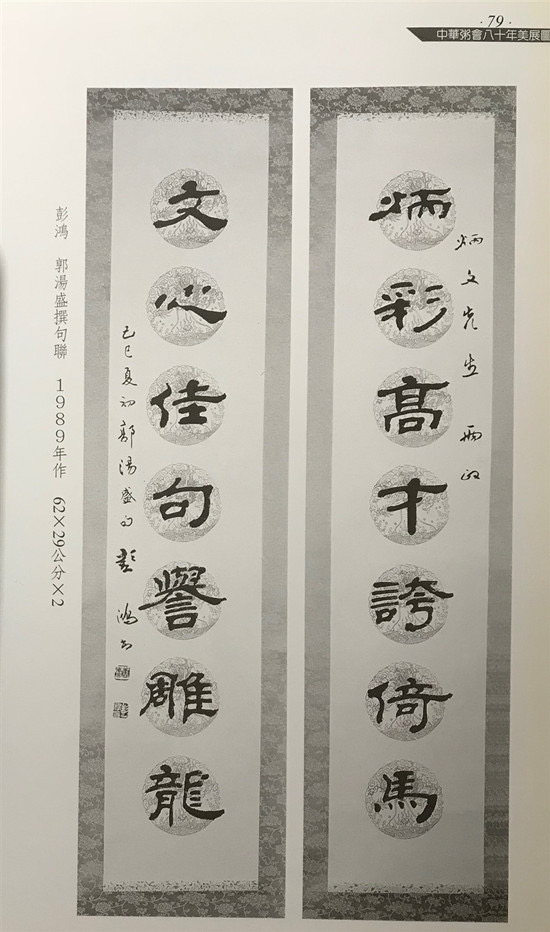 ·79·
中華粥會八十年美展圖
炳文先生雨政
炳彩高才誇倚馬
文心佳句譽雕龍
己巳夏初郭湯盛句彭鴻書
彭鴻 郭湯盛撰句聯 1989年作 62×29公分×2